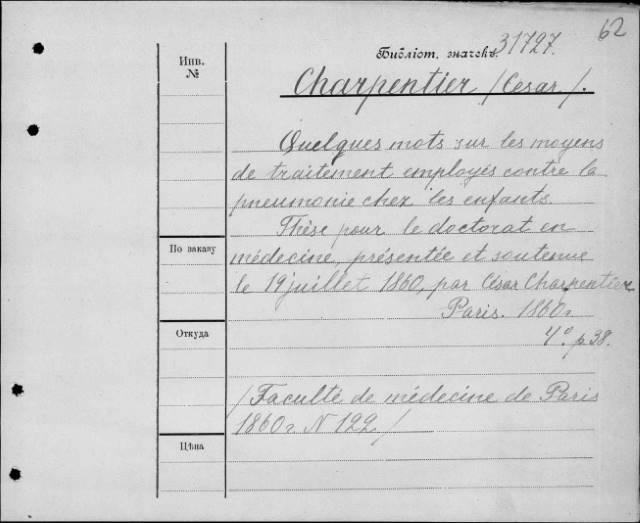 62
Библіот. значекъ 31727.
Инв.
№
Charpentier / Cesar /.
Quelques mots sur les moyens
de traitement employés contre la
pneumonie chez les enfants.
Thèse pour le doctorat en
médecine, présentée et soutenue
le 19 juillet 1860, par César Charpentier
Paris. 1860г.
4°. p 38.
По заказу
Откуда
/ Faculté de médecine de Paris
1860г. N 122 /
Цѣна